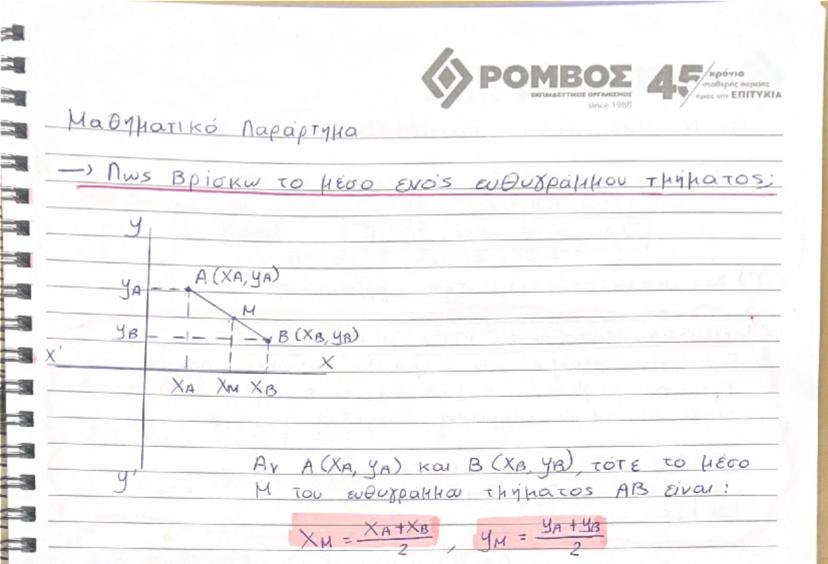 ΡΟΜΒΟΣ
ΕΚΠΑΙΔΕΥΤΙΚΟΣ ΟΡΓΑΝΙΣΜΟΣ
since 1980
45 χρόνια
σταθερής πορείας
προς την ΕΠΙΤΥΧΙΑ
Μαθηματικό Παράρτημα
→ Πως βρίσκω το μέσο ενός ευθυγράμμου τμήματος;
y
A (XA, yA)
yA
M
yB
B (XB, yB)
X'
X
XA XM XB
y'
Αν A (XA, yA) και B (XB, yB), τότε το μέσο
M του ευθυγράμμου τμήματος AB είναι:
XM = (XA+XB)/2 , yM = (yA+yB)/2